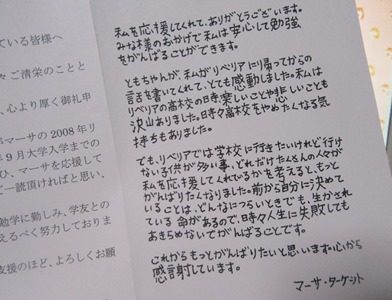 ている皆様へ
々ご清栄のことと
、心より厚く御礼申
マーサの2008年リ
年9月大学入学までの
ひ、マーサを応援して
ご一読頂ければと思い、
勉学に勤しみ、学友との
えるべく努力しておりま
支援のほど、よろしくお願
私を応援してくれて、ありがとうございます。
みな様のおかげで私は安心して勉強
をがんばることができます。
ともちゃんが、私がリベリアに帰ってからの
話を書いてくれて、とても感動しました。私は
リベリアの高校の日時、楽しいことや悲しいことも
沢山ありました。日々高校をやめたくなる気
持ちもありました。
でも、リベリアでは学校に行きたいけれど行け
ない子供が多い事、どれだけたくさんの人々が
私を応援してくれているかを考えると、もっと
がんばりたくなりました。前から自分に決めて
いることは、どんなにつらいときでも、生かされ
ている命があるので、日々人生に失敗しても
あきらめないでがんばることです。
これからもっとがんばりたいと思います。心から
感謝しています。
マーサ・ターケット